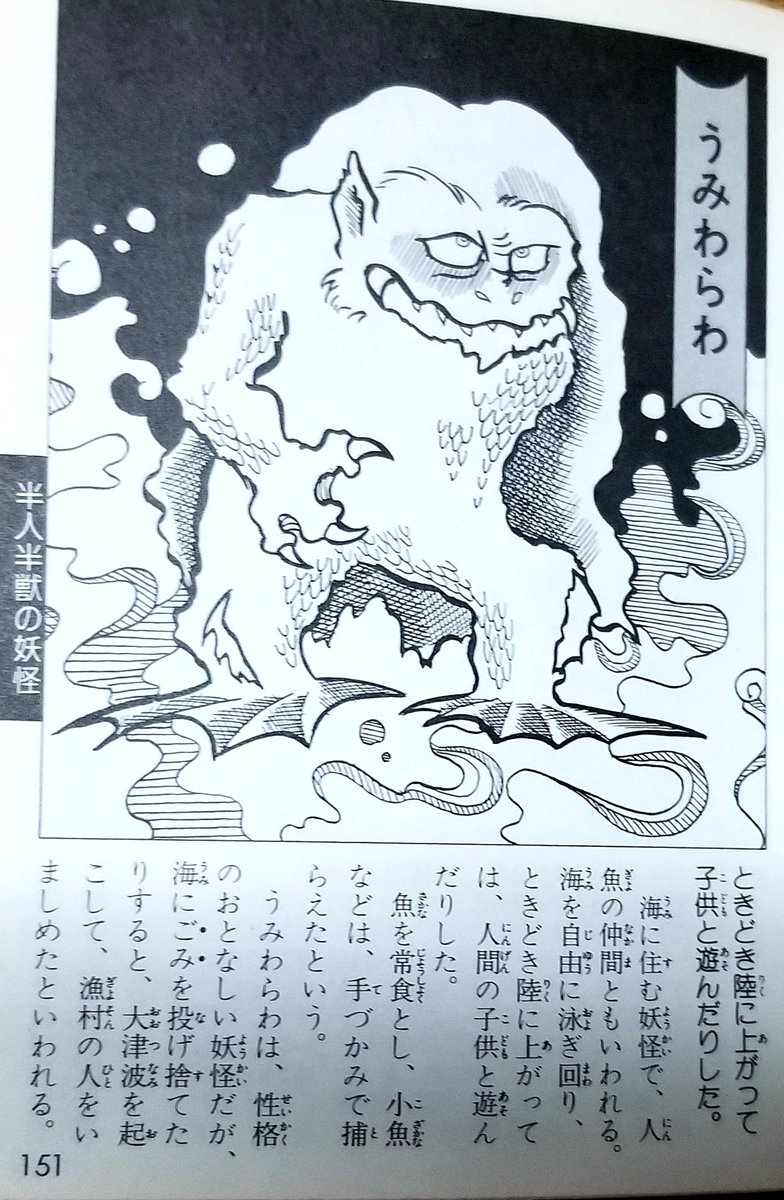 うみわらわ
半人半獣の妖怪
ときどき陸に上がって
子供と遊んだりした。
海に住む妖怪で、人
魚の仲間ともいわれる。
海を自由に泳ぎ回り、
ときどき陸に上がって
は、人間の子供と遊ん
だりした。
魚を常食とし、小魚
などは、手づかみで捕
らえたという。
うみわらわは、性格
のおとなしい妖怪だが、
海にごみを投げ捨てた
りすると、大津波を起
こして、漁村の人をい
ましめたといわれる。
151